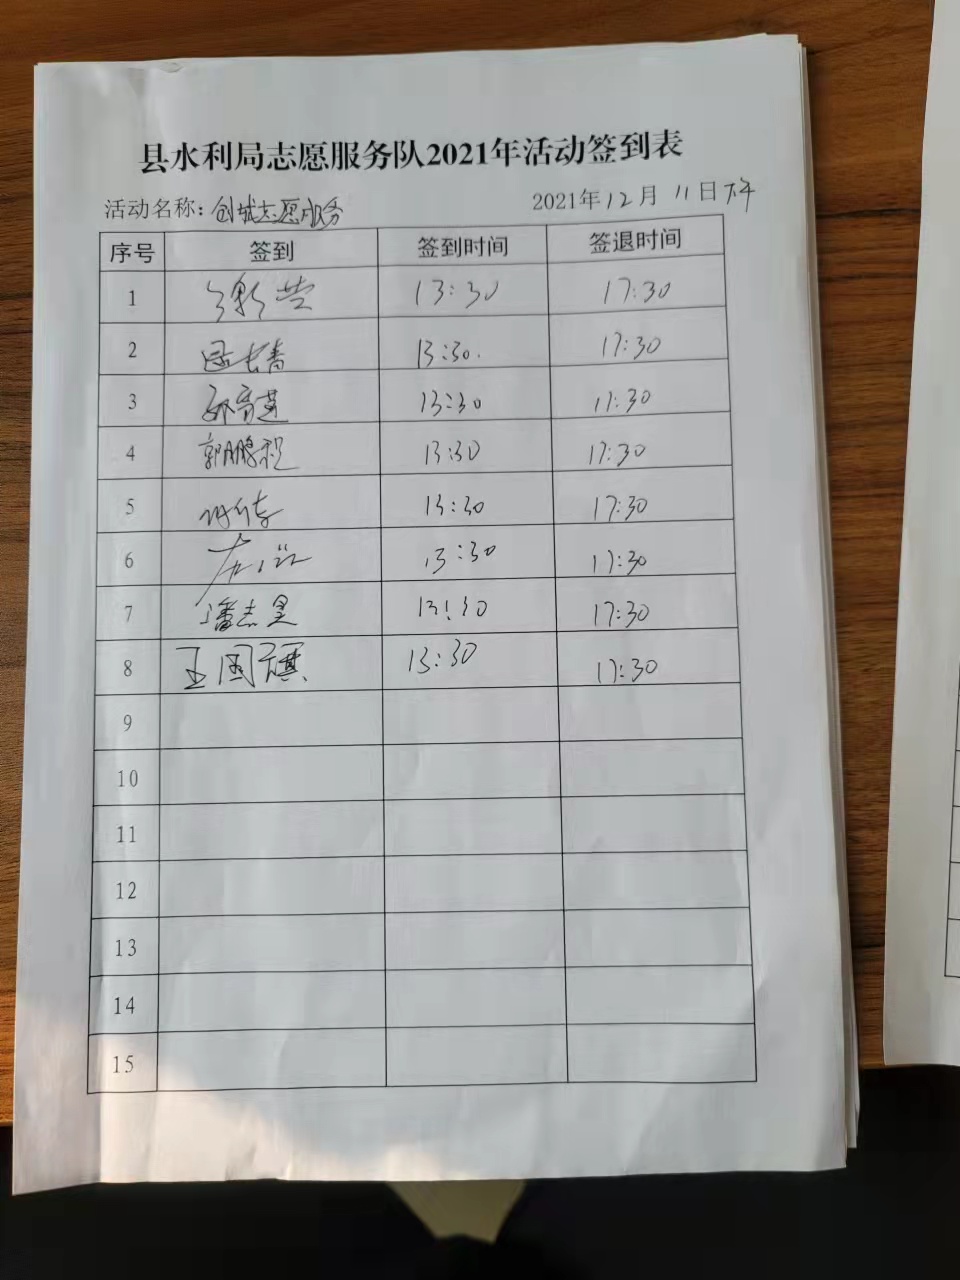 县水利局志愿服务队2021年活动签到表
活动名称：创城志愿服务 2021年12月11日下午
序号 签到 签到时间 签退时间
1 13:30 17:30
2 13:30. 17:30
3 13:30 17:30
4 郭鹏程 13:30 17:30
5 13:30 17:30
6 13:30 17:30
7 潘志昊 13:30 17:30
8 王国旗 13:30 17:30
9
10
11
12
13
14
15